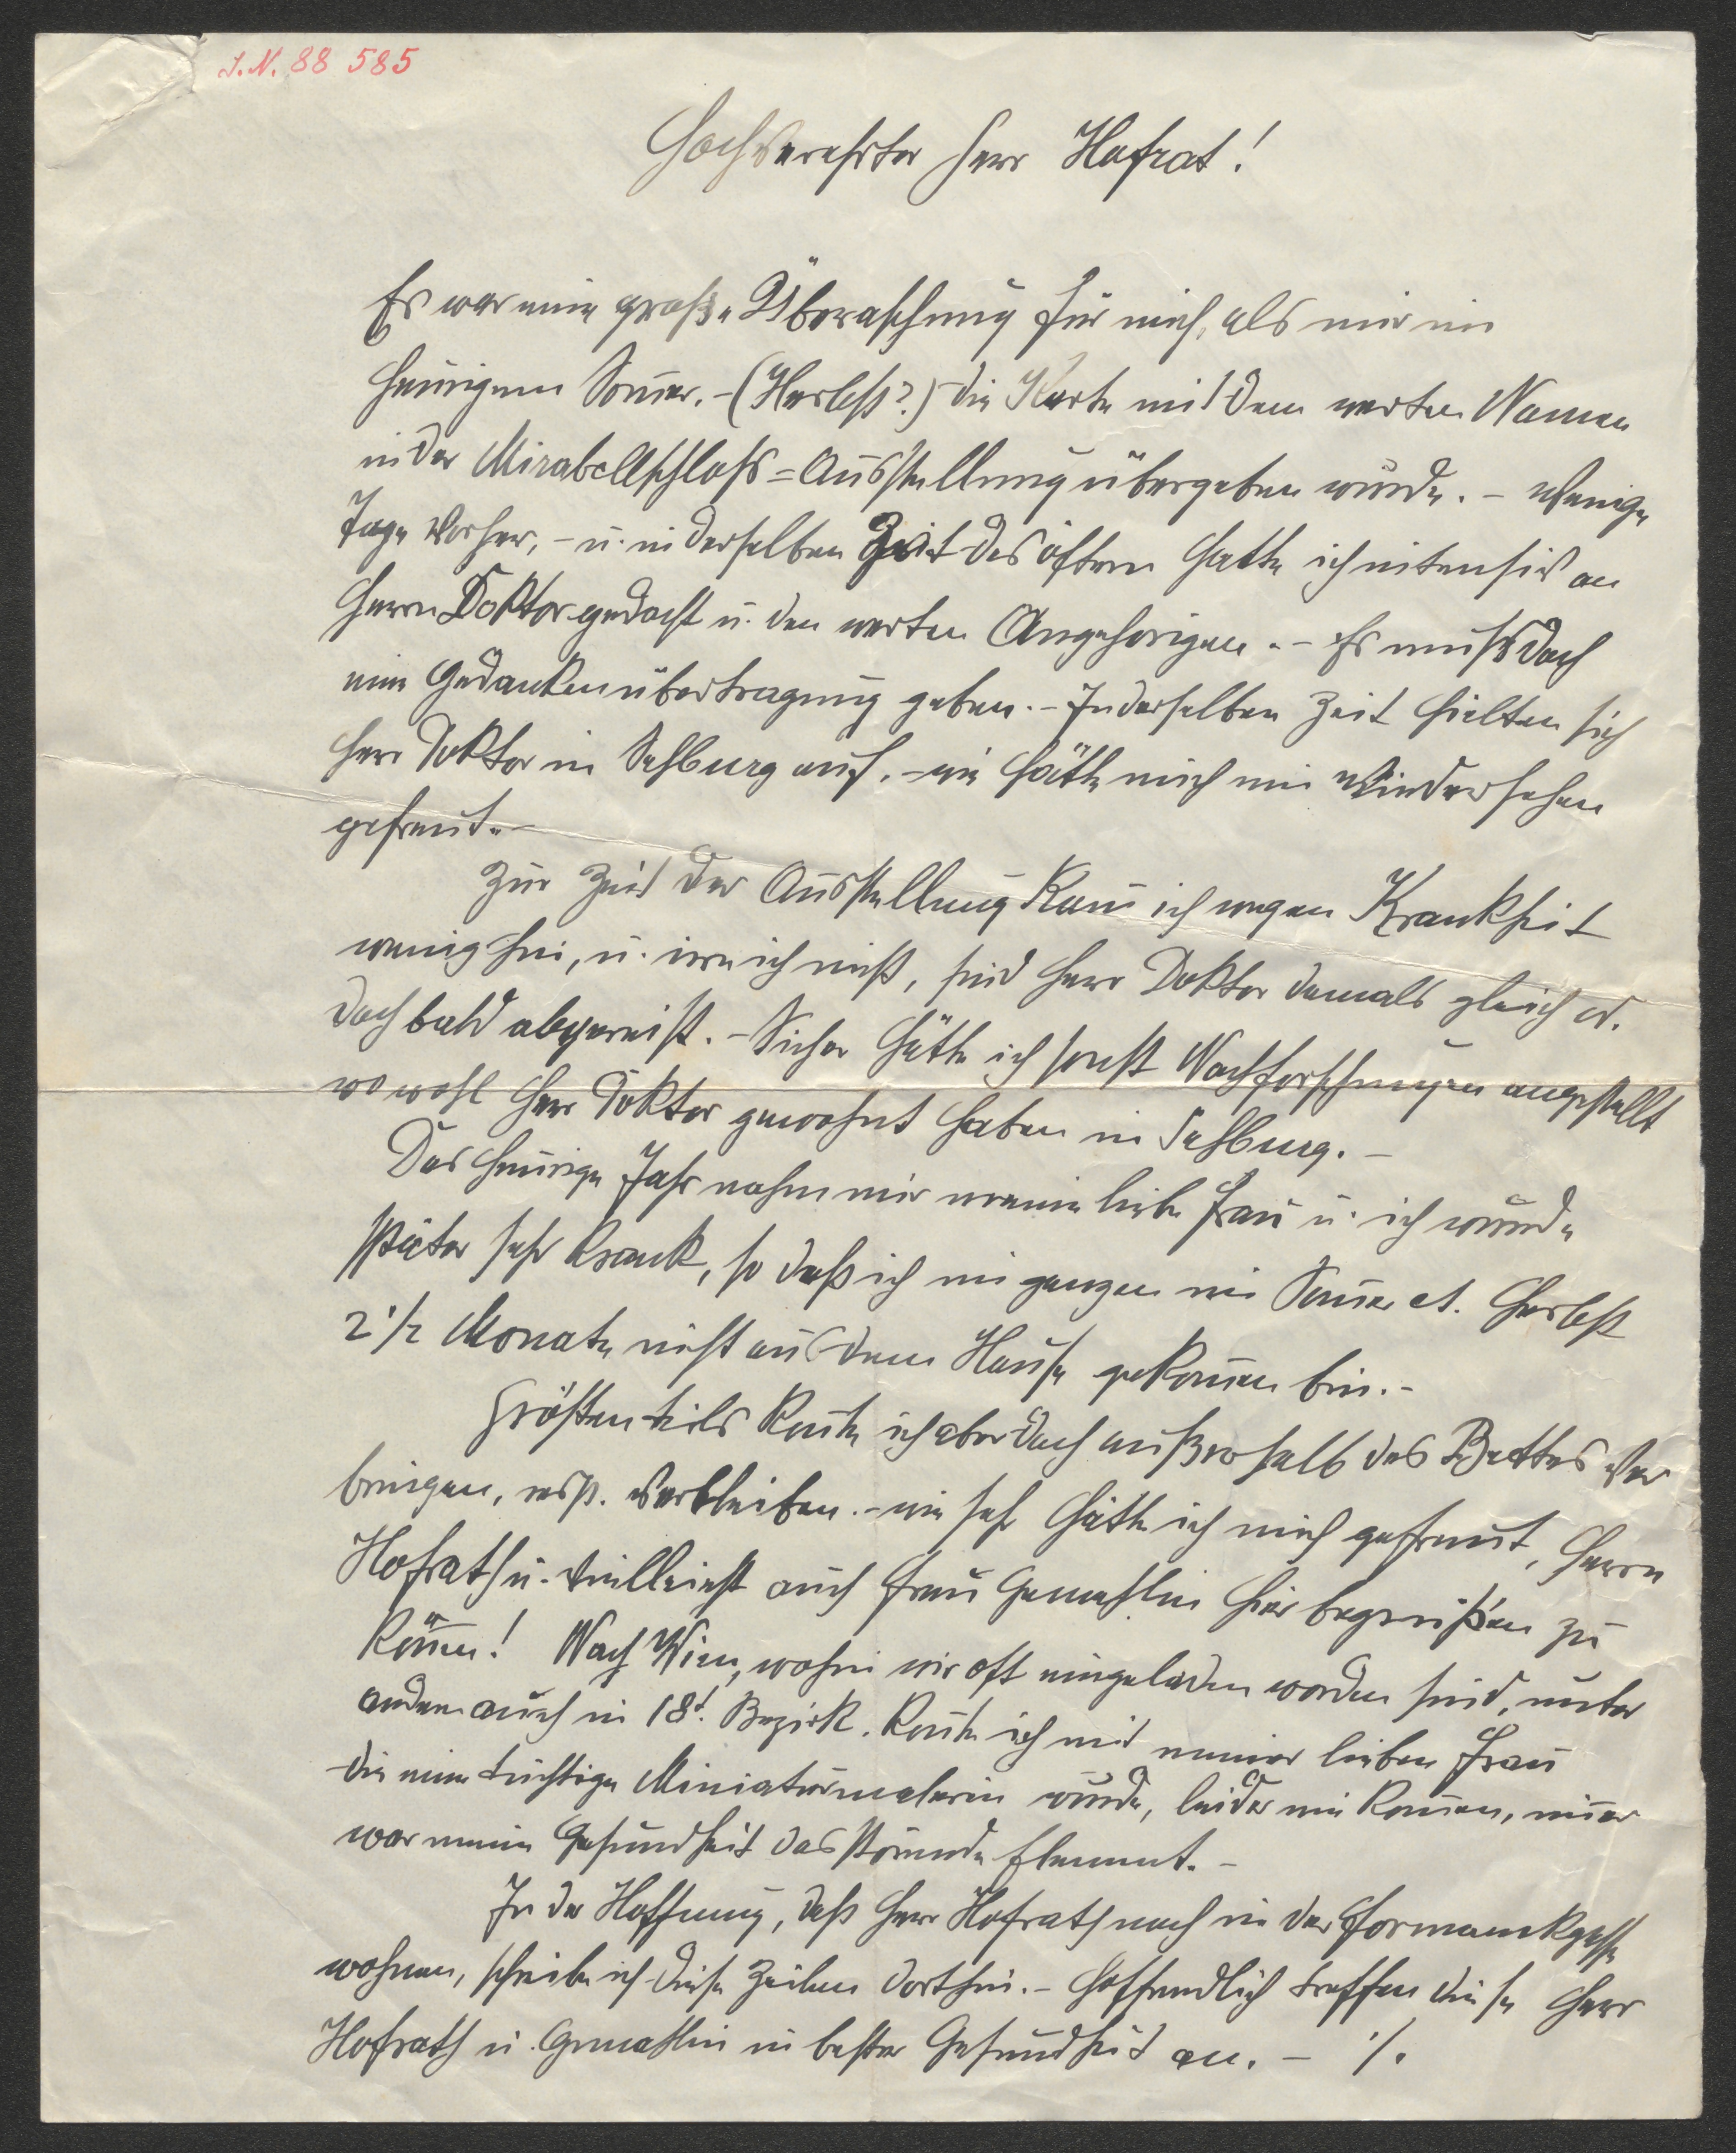 I.N. 88 585
Hochverehrter Herr Hofrat!
Es war eine große Überaschung für mich, als mir im
heurigem Somer. – (Herbst?.) die Karte mit dem werten Namen
in der Mirabellschloss=Ausstellung übergeben wurde. – Wenige
Tage vorher, – u. in derselben Zeit des öftern hatte ich intensiv an
Herrn Doktor gedacht u. den werten Angehörigen. – Es muss doch
eine Gedankenübertragung geben. – In derselben Zeit hielten sich
Herr Doktor in Salzburg auf. – wie hätte mich ein Wiedersehen
gefreut. –
Zur Zeit der Ausstellung kam ich wegen Krankheit
wenig hin, u. irre ich nicht, sind Herr Doktor damals gleich od.
doch bald abgereist. – Sicher hätte ich sonst Nachforschungen angestellt
wo wohl Herr Doktor gewohnt haben in Salzburg. –
Das heurige Jahr nahm mir meine liebe Frau u. ich wurde
später sehr krank, so daß ich im ganzen im Somer et. Herbst
2 1/2 Monate nicht aus dem Hause gekomen bin. –
Größtenteils konte ich aber doch außerhalb des Bettes ver
bringen, resp. verbleiben. – wie sehr hätte ich mich gefreut, Herrn
Hofrath u. vielleicht auch Frau Gemahlin hier begrüßen zu
könen! Nach Wien, wohin wir oft eingeladen worden sind, unter
andem auch in 18t. Bezirk. konte ich mit meiner lieben Frau
die eine tüchtige Miniaturmalerin wurde, leider nie komen, imer
war meine Gesundheit das störende Element. –
In der Hoffnung, daß Herr Hofrath noch in der Hormankgasse
wohnen, schreibe ich diese Zeilen dorthin. – Hoffendlich treffen diese Herr
Hofrath u. Gemahlin in bester Gesundheit an. – ./.